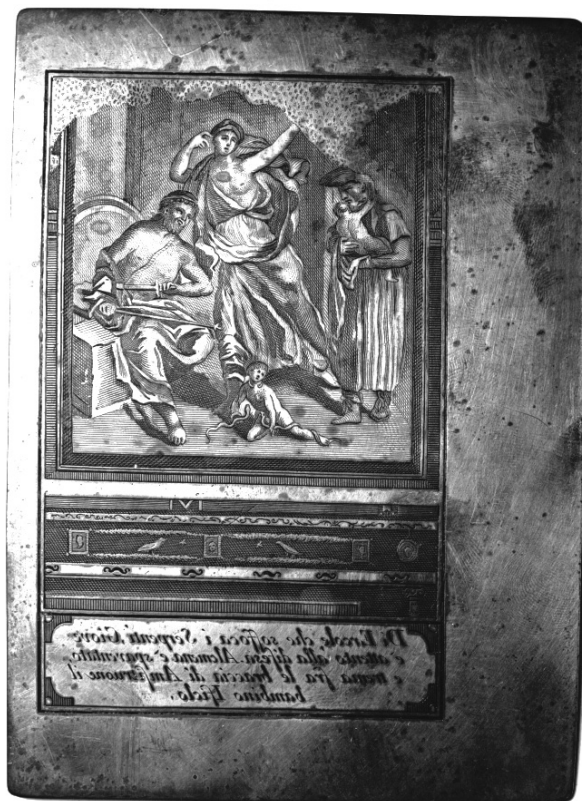 Di Ercole, che soffoca i Serpenti. Giove
è attento alla difesa. Alcmena è spaventata,
e trema fra le braccia di Amfitruone il
bambino Ificlo.